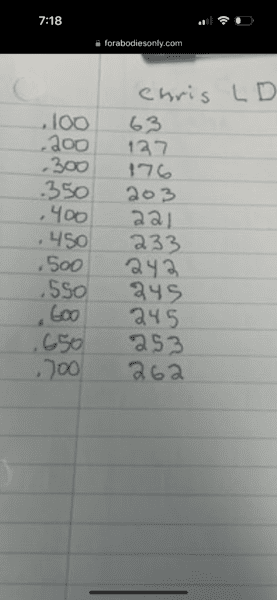 7:18
forabodiesonly.com
Chris LD
.100 63
.200 127
.300 176
.350 203
.400 221
.450 233
.500 242
.550 245
.600 245
.650 253
.700 262